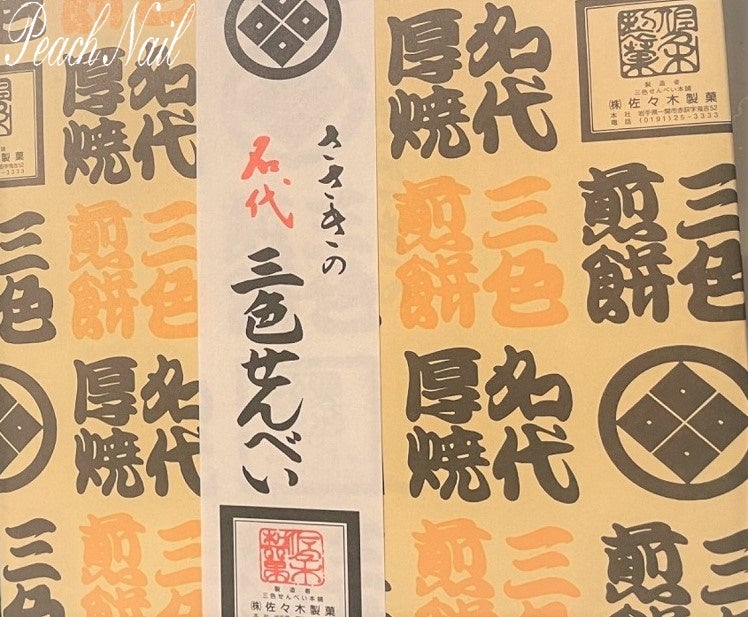 Peach Nail
ささきの
名代
三色せんべい
佐々木製菓
製造者
三色せんべい本舗
㈱佐々木製菓
名代
厚焼
三色
煎餅
名代
厚焼
三色
煎餅
佐々木製菓
製造者
三色せんべい本舗
㈱佐々木製菓
本社 岩手県一関市赤荻字鬼吉52
電話 (0191)25-3333
三色
煎餅
製菓
3333
名代
厚焼
三色
煎餅
名代
厚焼
三色
煎餅
三色